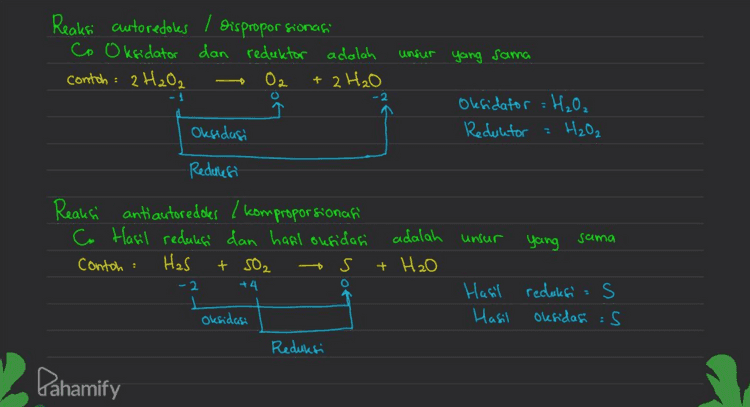 Reaksi autoredoks / Disproporsionasi
↳ Oksidator dan reduktor adalah unsur yang sama
Contoh : 2 H2O2 → O2 + 2 H2O
-1 0 -2
Oksidasi
Reduksi
Oksidator = H2O2
Reduktor = H2O2
Reaksi antiautoredoks / komproporsionasi
↳ Hasil reduksi dan hasil oksidasi adalah unsur yang sama
Contoh : H2S + SO2 → S + H2O
-2 +4 0
Oksidasi
Reduksi
Hasil reduksi = S
Hasil oksidasi = S
Pahamify